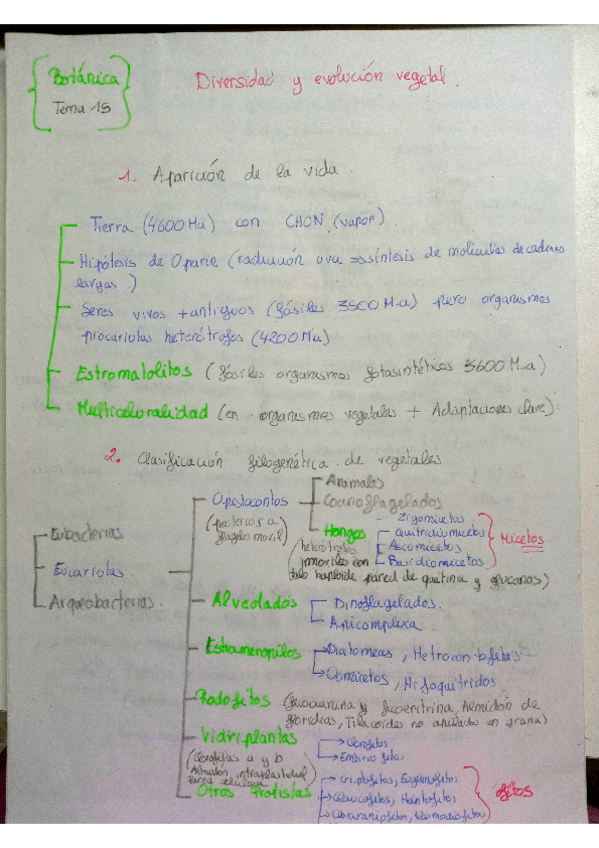 Botánica
Tema 15
Diversidad y evolución vegetal.
1. Aparición de la vida
Tierra (4600 Ma) con CHON (vapor)
Hipótesis de Oparie (radiación uva => síntesis de moléculas de cadenas
largas)
Seres vivos + antiguos (fósiles 3500 M.a) pero organismos
procariotas heterótrofos (4200 Ma)
Estromatolitos (fósiles organismos fotosintéticos 3600 M.a)
Multiceluralidad (en organismos vegetales + Adaptaciones clave).
2. Clasificación filogenética de vegetales
Eubacterias
Eucariotas
Arqueobacterias.
Opistocontos
(posterior a
flagelo movil)
Animales
Coanoflagelados
Hongos
(heterótrofos
inmoviles con
talo haploide pared de quitina y glucanos)
Zigomicetos
Quitridiomicetos
Ascomicetos
Basidiomicetos
Micetos
Alveolados
Dinoflagelados.
Apicomplexa
Estramenopilos
Diatomeas, Hetrocontofitos
Oomicetos, Hifoquitridos
Rodofitos (ficocianina y ficoeritrina, Almidón de
florideas, Tilacoides no apilados en grana)
Vidriplantas
(Clorofilas a y b
Almidón intraplastidial
Pared celulosa)
Clorofitos
Embriofitos
Otros Protistas
Criptofitos, Euglenofitos
Glaucofitos, Haptofitos
Cloraraniofitos,
ofitos